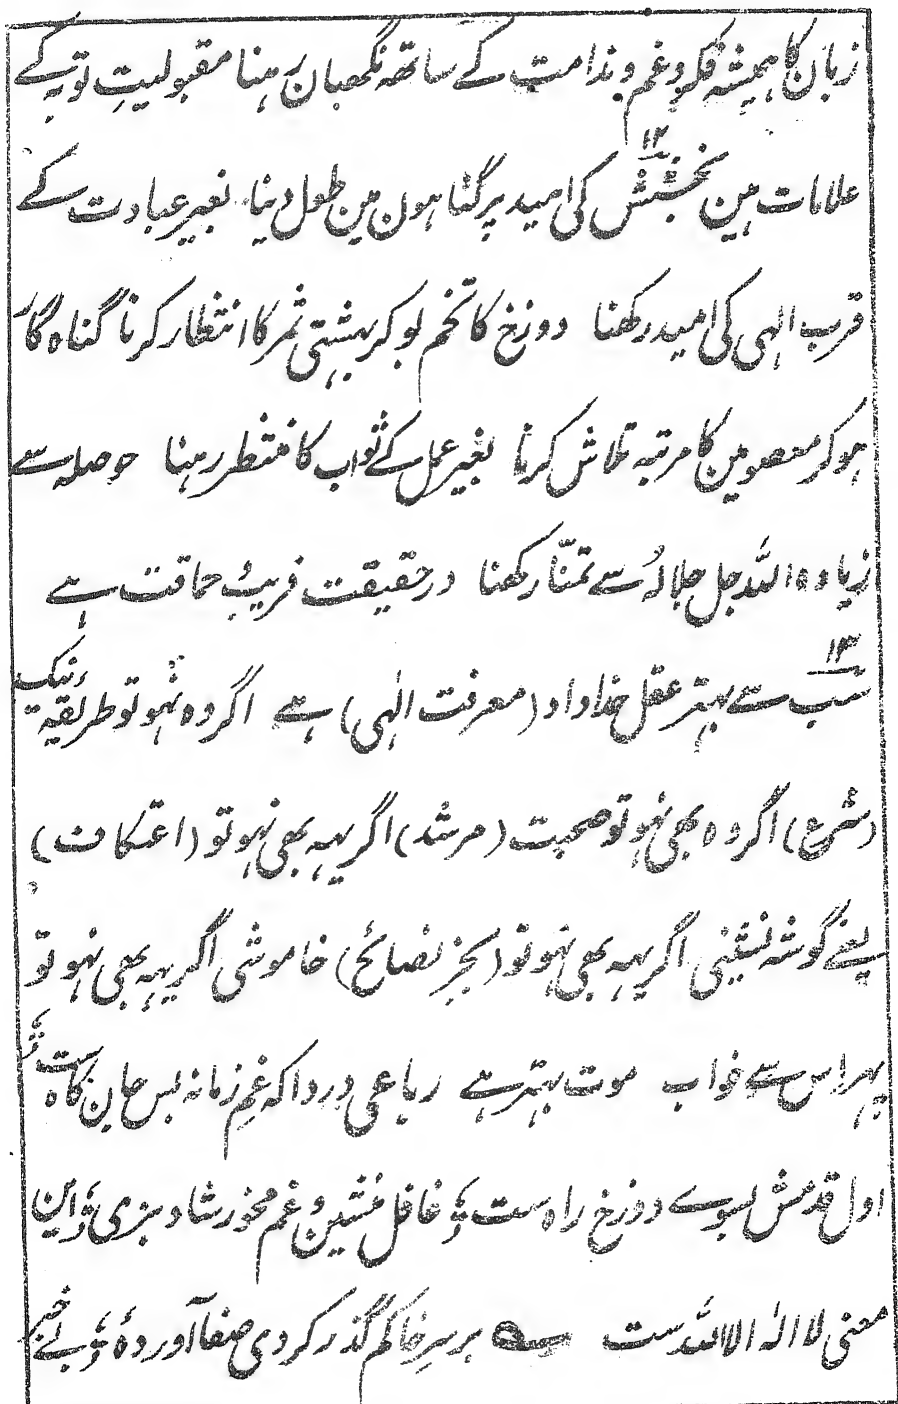 زبان کا ہمیشہ فکر و غم و ندامت کے ساتھہ نگہبان رہنا مقبولیتِ توبہ کے
علامات ہین ۱۲ بخشش کی امید پر گناہون مین طول دینا بغیر عبادت کے
قرب الہی کی امید رکھنا دوزخ کا تخم بو کر بہشتی ثمر کا انتظار کرنا گناہ گار
ہو کر معصومین کا مرتبہ تلاش کرنا بغیر عمل کے ثواب کا منتظر رہنا حوصلہ سے
زیادہ اللہ جل جلالہُ سے تمنّا رکھنا درحقیقت فریب حماقت ہے
۱۳ سب سے بہتر عقل خداداد (معرفت الہی) ہے اگر وہ نہو تو طریقہ نیک
(شرع) اگر وہ بھی نہو تو صحبت (مرشد) اگر یہہ بھی نہو تو (اعتکاف)
یعنے گوشہ نشینی اگر یہہ بھی نہو تو (بجز نصائح) خاموشی اگر یہہ بھی نہو تو
پہر اس سے خواب موت بہتر ہے رباعی دردا کہ غمِ زمانہ بس جان کاہ ست
اول قدمش بسوے دوزخ راہ ست غافل منشین و غم مخور شاد بزی این
معنی لا الہ الا اللہ ست بر سرِ خاکم گذر کردی صفا آوردہ بے خبر